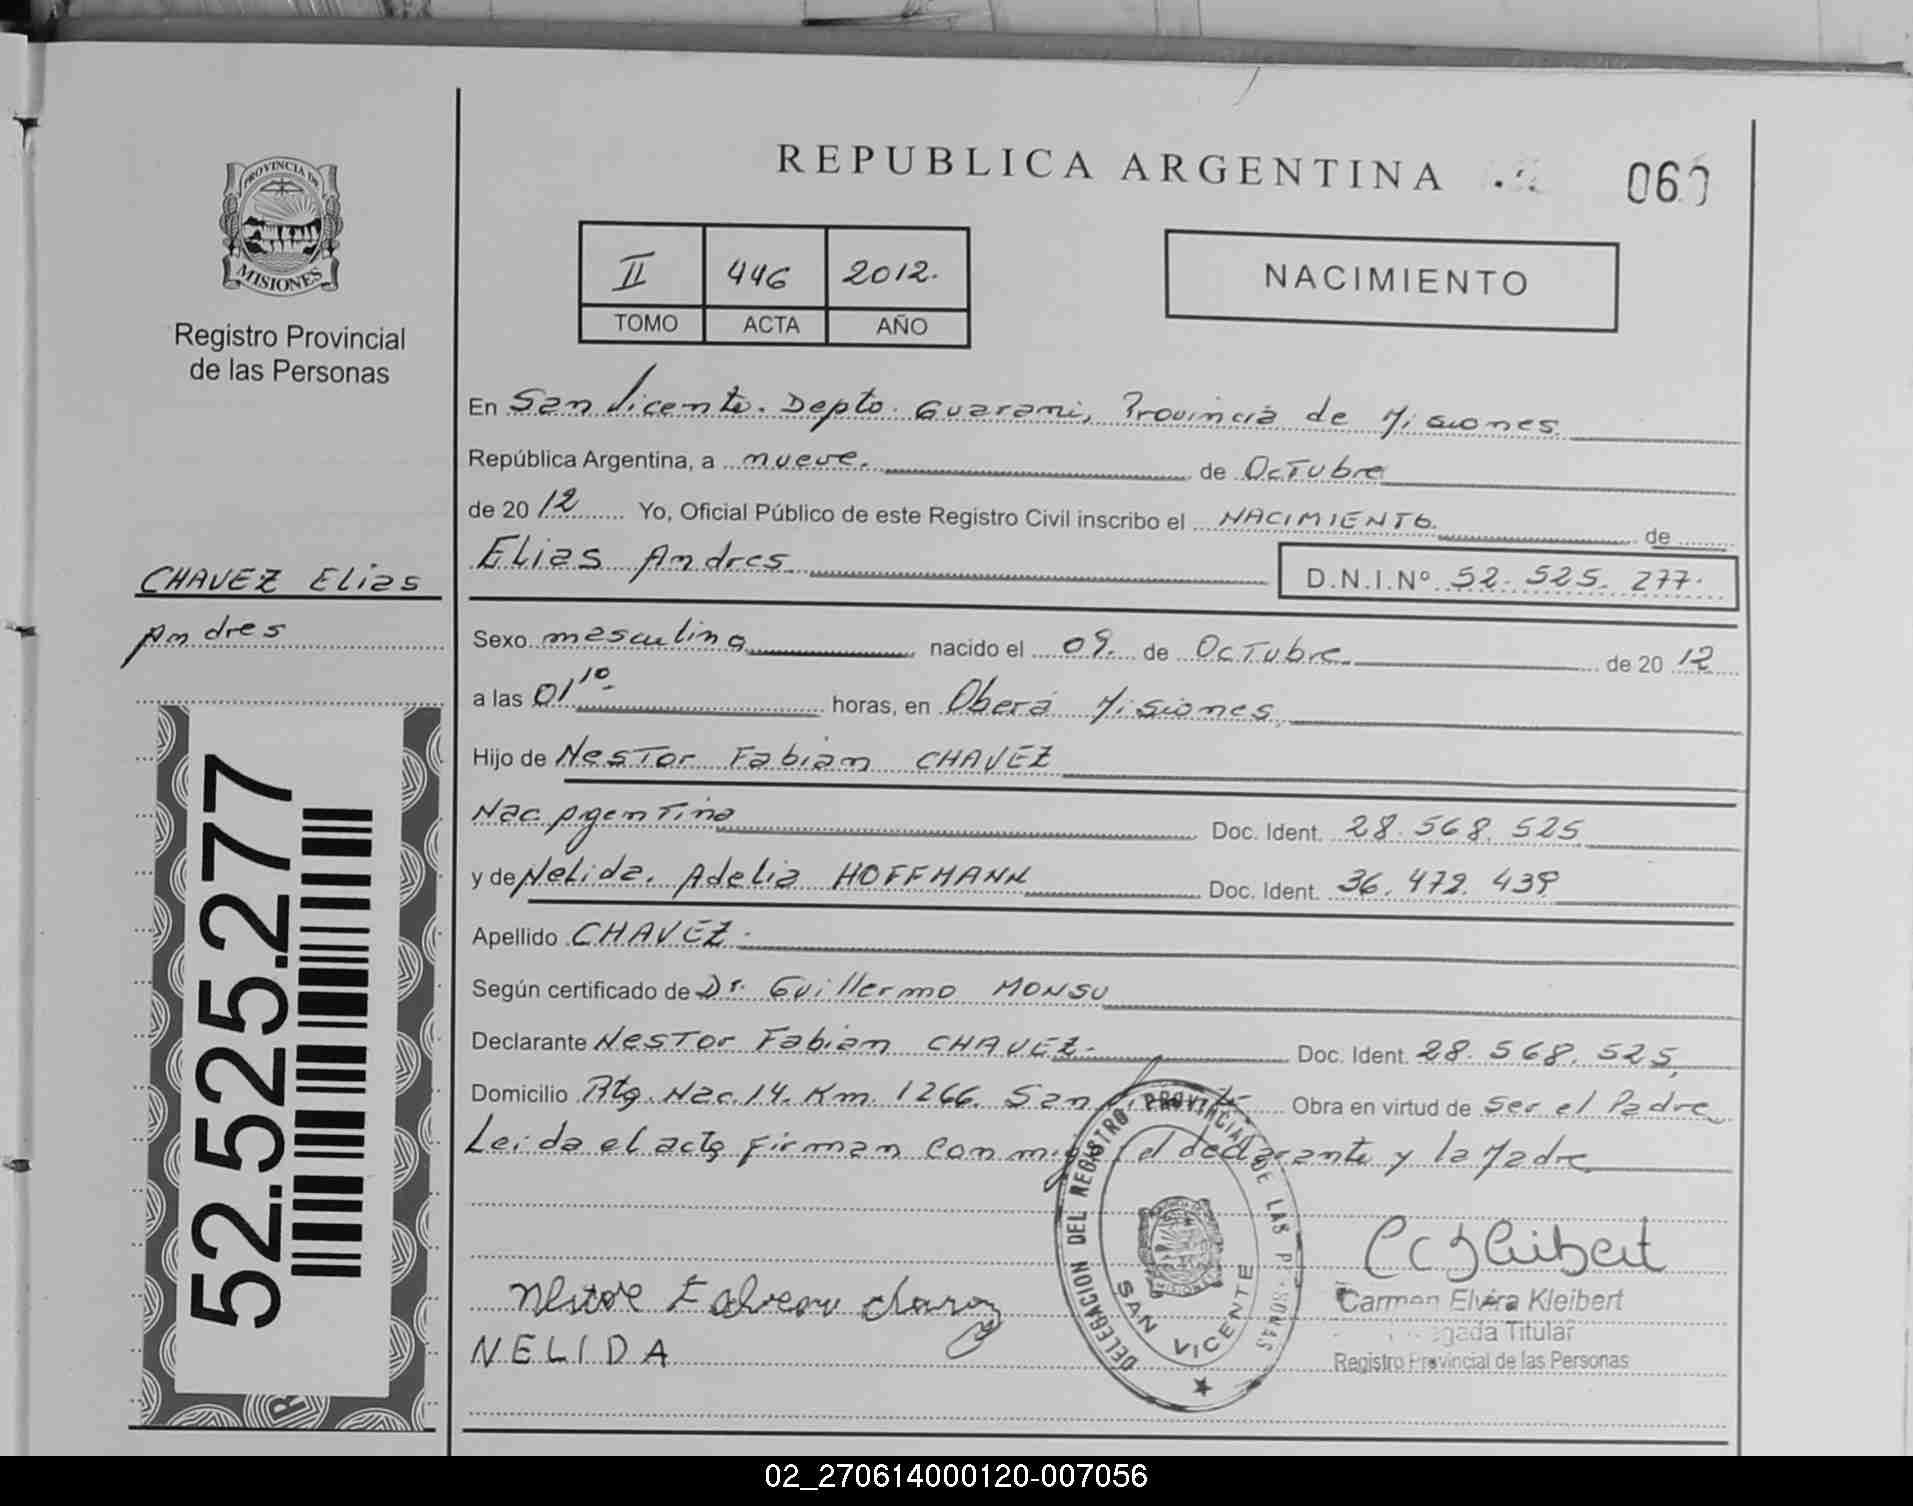 REPUBLICA ARGENTINA
PROVINCIA DE
MISIONES
Registro Provincial
de las Personas
II 446 2012.
TOMO ACTA AÑO
NACIMIENTO
En San Vicente. Depto. Guarani, Provincia de Misiones
República Argentina, a nueve. de Octubre
de 2012 Yo, Oficial Público de este Registro Civil inscribo el NACIMIENTO. de
Elias Andres D.N.I.Nº 52.525.277.
CHAVEZ Elias
Andres
Sexo masculino nacido el 09. de Octubre de 2012
a las 01 10 horas, en Oberá Misiones,
Hijo de Nestor Fabian CHAVEZ
Nac Argentina Doc. Ident. 28.568.525
y de Nelida. Adelia HOFFMANN Doc. Ident. 36.472.439
Apellido CHAVEZ.
Según certificado de Dr. Guillermo MONSU
Declarante Nestor Fabian CHAVEZ- Doc. Ident. 28.568.525,
Domicilio Rta. Nac. 14. Km. 1266. San Vicente Obra en virtud de ser el Padre
Leida el acta firman conmigo el declarante y la Madre
52.525.277
DELEGACION DEL REGISTRO PROVINCIAL DE LAS PERSONAS
SAN VICENTE
Nestor Fabian Chavez
NELIDA
Carmen Elvira Kleibert
Titular
Registro Provincial de las Personas
02_270614000120-007056